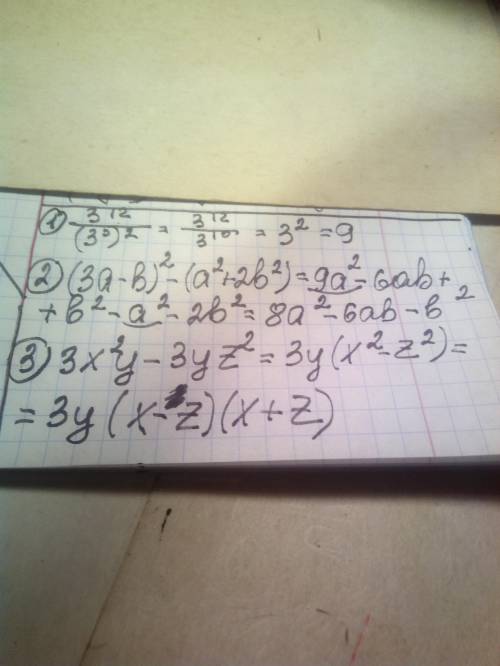 ① 3¹²/(3⁵)² = 3¹²/3¹⁰ = 3² = 9
② (3a-b)²-(a²+2b²)=9a²-6ab+
+b²-a²-2b²=8a²-6ab-b²
③ 3x²y-3yz²=3y(x²-z²)=
=3y(x-z)(x+z)